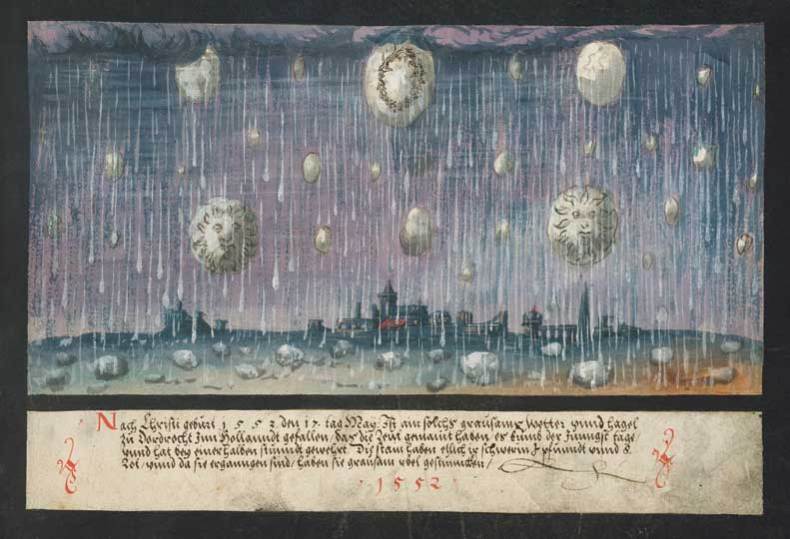 Nach Christi geburt 1 5 5 2 den 17 tag May Ist ain solchs graůsams wetter vnnd hagel
zů Dordrocht Inn Hollanndt gefallen / das die leut gemaint haben es kumb der Jungst tage
vnnd hat bey einer halben stůnndt gewehrt Die stain haben etlich gewegen pfůnndt vnnd 8
lot / vnnd da sie zerganngen sind / haben sie graůsam vbel gestuncken /
1 5 5 2